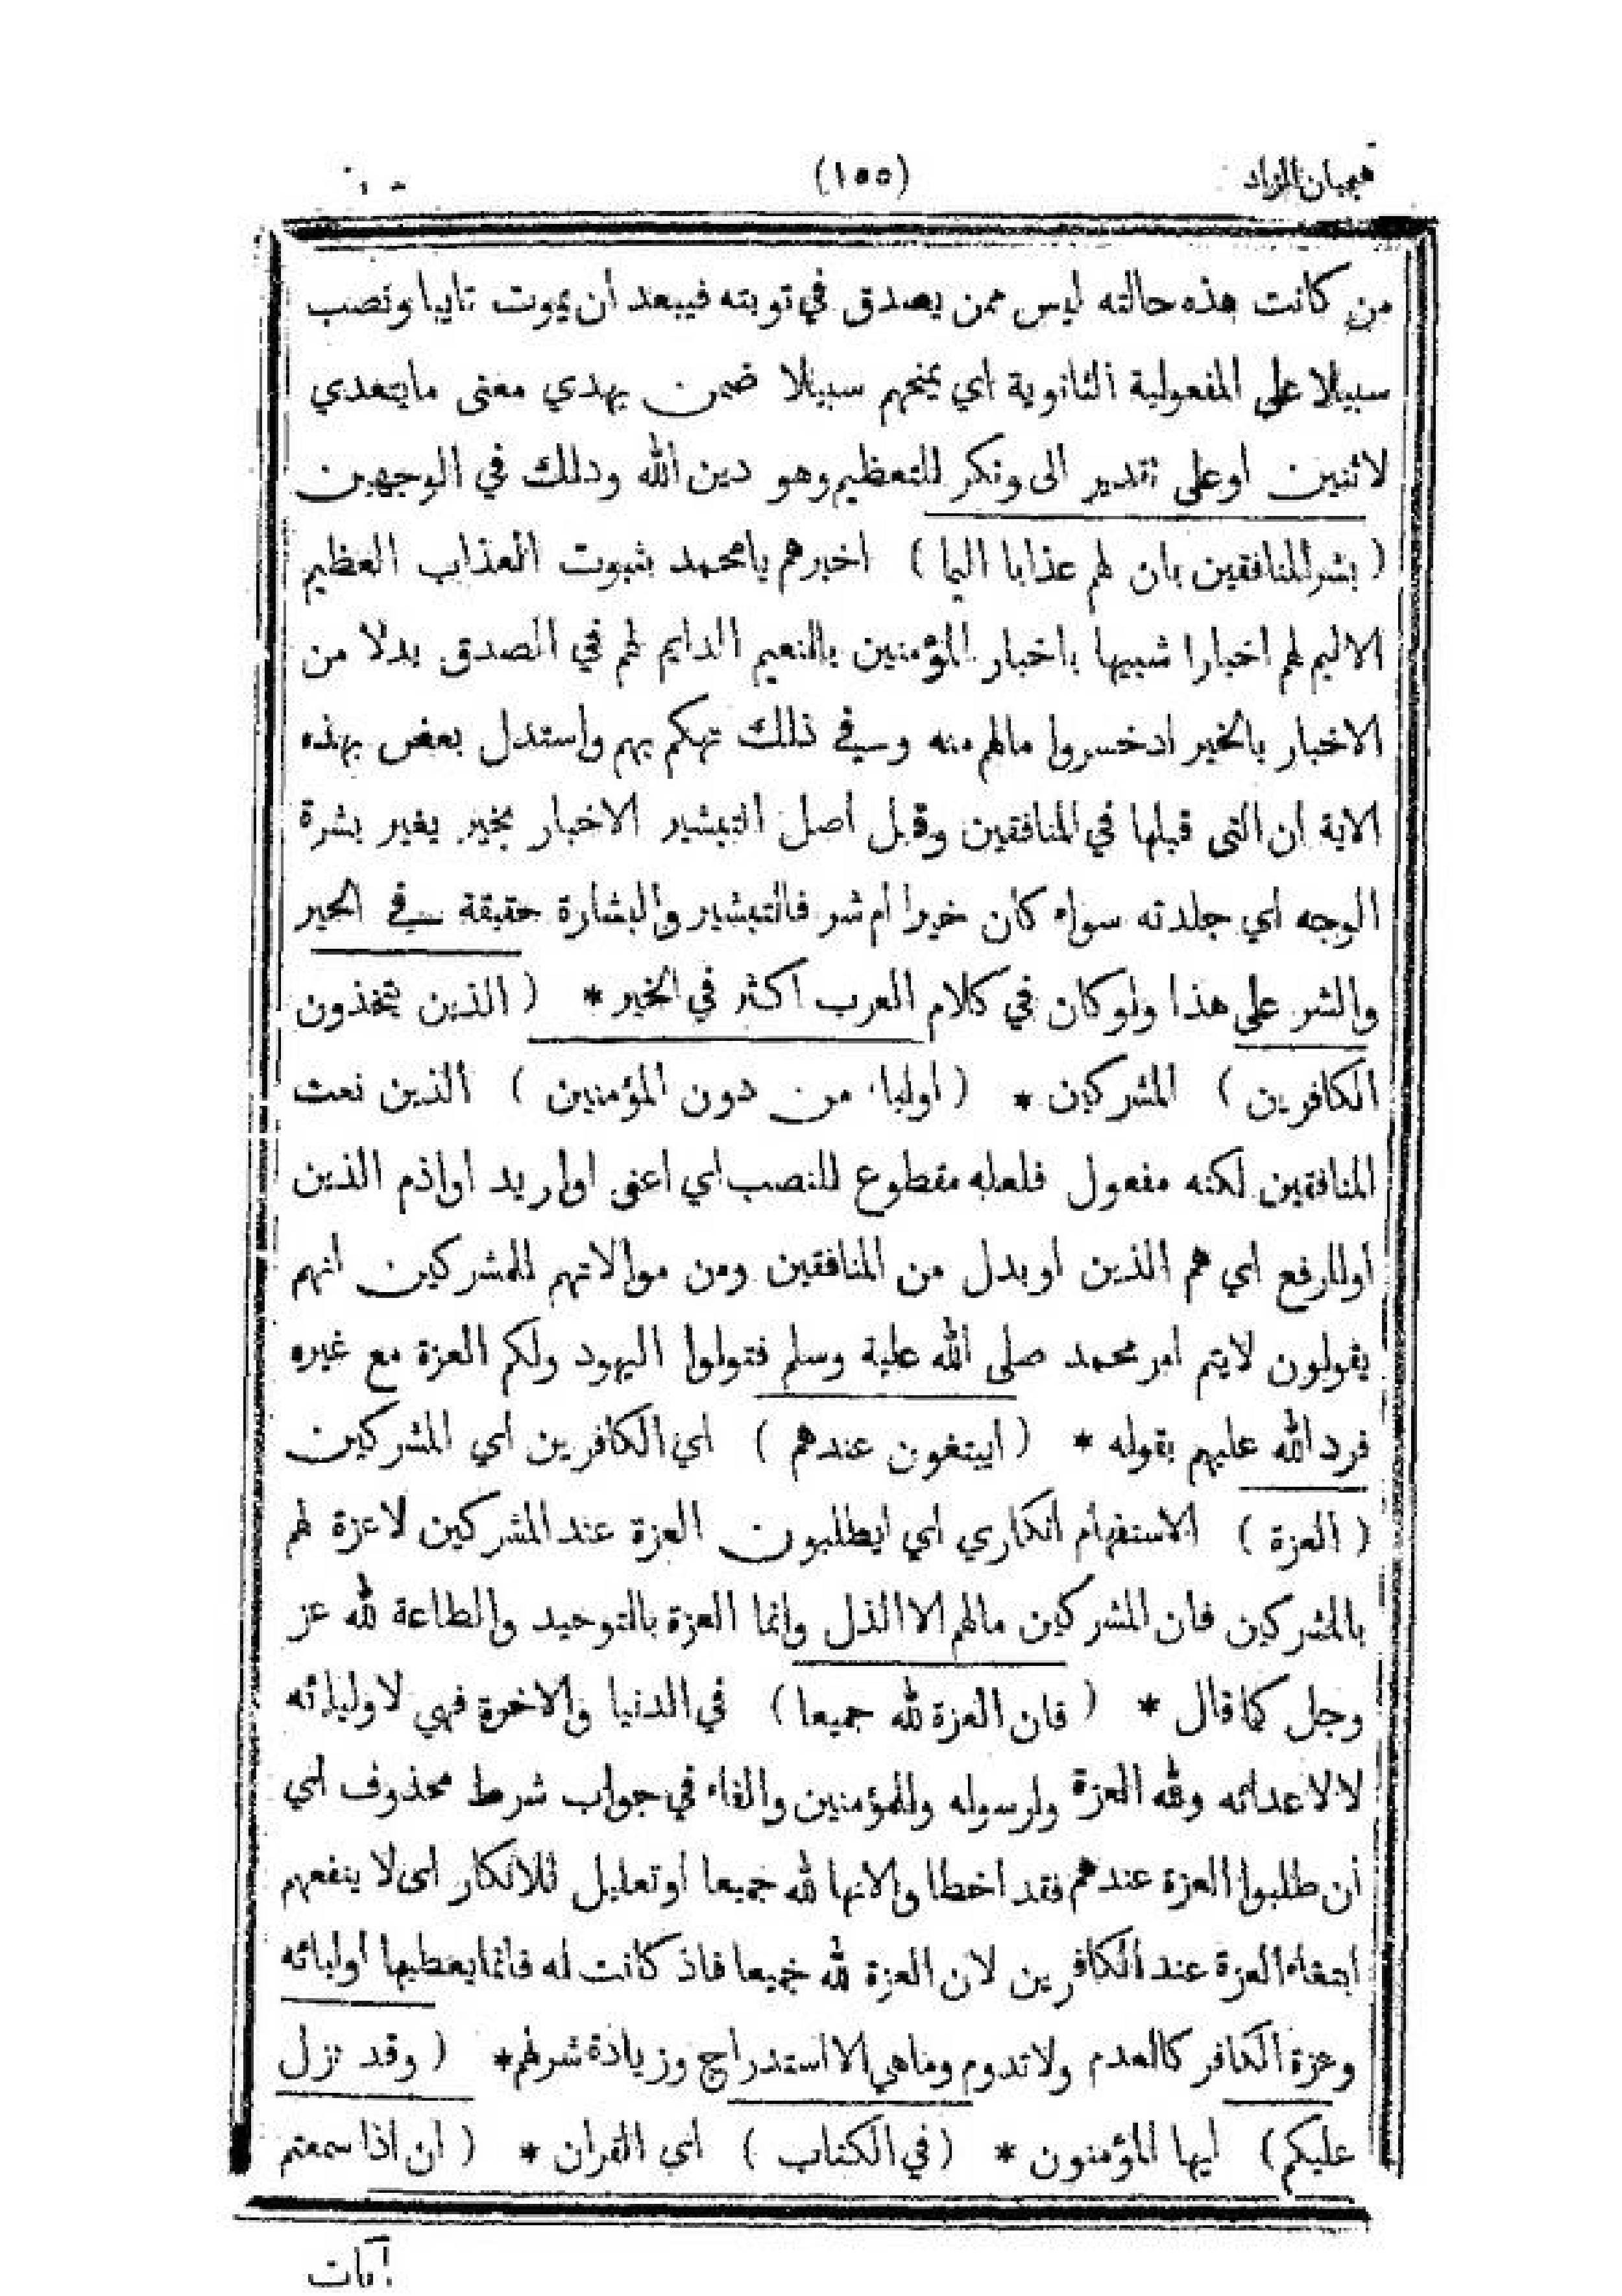 هميان الزاد
(١٥٥)
من كانت هذه حالته ليس ممن يصدق في توبته فيبعد أن يموت تايبا ونصب
سبيلا على المفعولية الثانوية اي يمنحهم سبيلا ضمن يهدي معنى مايتعدي
لاثنين اوعلى تقدير الى ونكر للتعظيم وهو دين الله ودلك في الوجهين
( بشرالمنافقين بان لهم عذابا اليما ) اخبرهم يامحمد بثبوت العذاب العظيم
الاليم لهم اخبارا شبيها باخبار المؤمنين بالنعيم الدايم لهم في الصدق بدلا من
الاخبار بالخير ادخسروا مالهم منه وفي ذلك تهكم بهم واستدل بعض بهذه
الاية ان التى قبلها في المنافقين وقيل أصل التبشير الاخبار بخير يغير بشرة
الوجه اي جلدته سواء كان خيرا ام شر فالتبشير والبشارة حقيقة في الخير
والشر على هذا ولوكان في كلام العرب اكثر في الخير * ( الذين يتخذون
الكافرين ) المشركين * ( اولياء من دون المؤمنين ) الذين نعت
المنافقين لكنه مفعول فلعله مقطوع للنصب اي اعنى اواريد اواذم الذين
اوللرفع اي هم الذين اوبدل من المنافقين ومن موالاتهم للمشركين انهم
يقولون لايتم امر محمد صلى الله علية وسلم فتولوا اليهود ولكم العزة مع غيره
فرد الله عليهم بقوله * ( ايبتغون عندهم ) اي الكافرين اي المشركين
( العزة ) الاستفهام انكاري اي ايطلبون العزة عند المشركين لاعزة لهم
بالمشركين فان المشركين مالهم الا الذل وانما العزة بالتوحيد والطاعة لله عز
وجل كما قال * ( فان العزة لله جميعا ) في الدنيا والاخرة فهي لاوليائه
لالاعدائه ولله العزة ولرسوله وللمؤمنين والفاء في جواب شرط محذوف اي
أن طلبوا العزة عندهم فقد اخطا والانها لله جميعا اوتعليل للانكار اى لا ينفعهم
ابتغاء العزة عند الكافرين لان العزة لله جميعا فاذ كانت له فانما يعطيها أوليائه
وعزة الكافر كالعدم ولاتدوم وماهي الا استدراج وزيادة شرلهم * ( وقد نزل
عليكم ) ايها المؤمنون * ( في الكتاب ) اي القران * ( ان اذا سمعتم
آيات